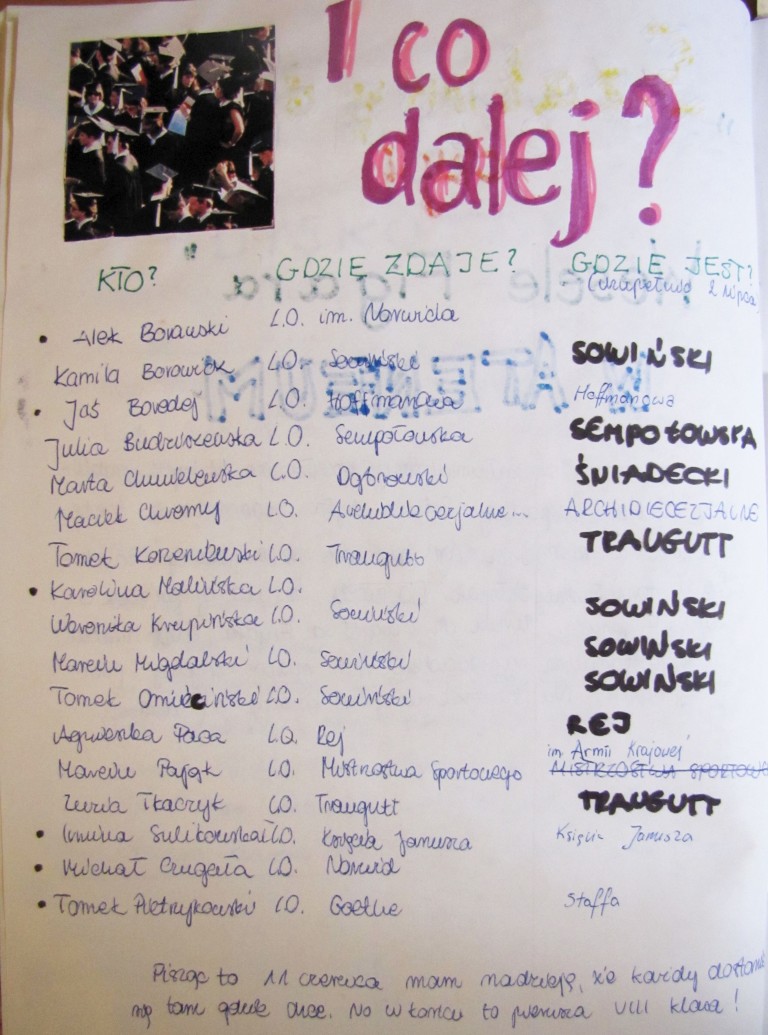 I co
dalej?
KTO? GDZIE ZDAJE? GDZIE JEST?
(uzupełniono 2 lipca)
Alek Borawski L.O. im. Norwida
Kamila Borowik L.O. Sowiński SOWIŃSKI
Jaś L.O. Hoffmanowa Hoffmanowa
Julia L.O. Sempołowska SEMPOŁOWSKA
Marta Chmielewska L.O. Dąbrowski ŚNIADECKI
Maciek Chromy L.O. Archidiecezjalne... ARCHIDIECEZJALNE
Tomek L.O. Traugutt TRAUGUTT
Karolina Malińska L.O.
Weronika Krupińska L.O. Sowiński SOWIŃSKI
Marcin Migdalski L.O. Sowiński SOWIŃSKI
Tomek Omieciński L.O. Sowiński SOWIŃSKI
Agnieszka Paca L.O. Rej REJ
im. Armii Krajowej
Marcin Pająk L.O. Mistrzostwa Sportowego MISTRZOSTWA SPORTOWE
Zuzia Tkaczyk L.O. Traugutt TRAUGUTT
Sulikowska L.O. Księcia Janusza Księcia Janusza
Michał Czugała L.O. Norwid
Tomek Pietrzykowski L.O. Goethe Staffa
Pisząc to 11 czerwca mam nadzieję, że każdy dostanie
się tam gdzie chce. No w końcu to pierwsza VIII klasa!